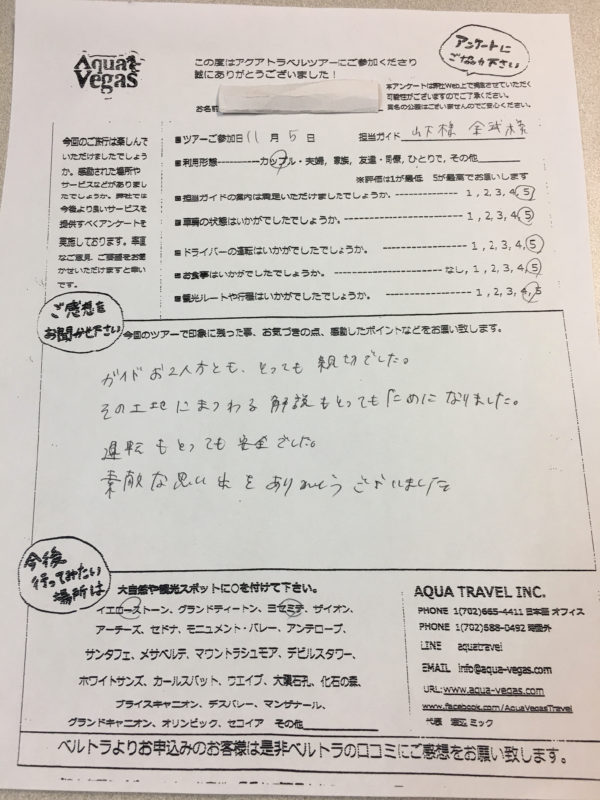 Aqua Vegas
この度はアクアトラベルツアーにご参加くださり
誠にありがとうございました！
アンケートに
ご協力下さい
本アンケートは弊社Web上で掲載させていただく
可能性がございますのでご了承ください。
実名の公表はございませんのでご安心ください。
お名前
今回のご旅行は楽しんで
いただけましたでしょう
か。感動された場所や
サービスなどがありまし
たでしょうか。弊社では
今後より良いサービスを
提供すべくアンケートを
実施しております。率直
なご意見、ご要望をお聞
かせいただけますと幸い
です。
■ツアーご参加日 11 月 5 日 担当ガイド 山下様 金武様
■利用形態-----------カップル・夫婦, 家族, 友達・同僚, ひとりで, その他
※評価は1が最低 5が最高でお願いします
■担当ガイドの案内は満足いただけましたでしょうか。------------------ 1, 2, 3, 4, 5
■車輌の状態はいかがでしたでしょうか。------------------ 1, 2, 3, 4, 5
■ドライバーの運転はいかがでしたでしょうか。------------------ 1, 2, 3, 4, 5
■お食事はいかがでしたでしょうか。------------------ なし, 1, 2, 3, 4, 5
■観光ルートや行程はいかがでしたでしょうか。------------------ 1, 2, 3, 4, 5
ご感想を
お聞かせ下さい
今回のツアーで印象に残った事、お気づきの点、感動したポイントなどをお願い致します。
ガイドお2人方とも、とっても親切でした。
その土地にまつわる解説もとってもためになりました。
運転もとっても安全でした。
素敵な思い出をありがとうございました
今後
行ってみたい
場所は
大自然や観光スポットに○を付けて下さい。
イエローストーン、グランドティートン、ヨセミテ、ザイオン、
アーチーズ、セドナ、モニュメント・バレー、アンテロープ、
サンタフェ、メサベルデ、マウントラシュモア、デビルスタワー、
ホワイトサンズ、カールスバット、ウエイブ、大隕石孔、化石の森、
ブライスキャニオン、デスバレー、マンザナール、
グランドキャニオン、オリンピック、セコイア その他
AQUA TRAVEL INC.
PHONE 1(702)665-4411 日本語 オフィス
PHONE 1(702)588-0492 時間外
LINE aquatravel
EMAIL info@aqua-vegas.com
URL: www.aqua-vegas.com
www.facebook.com/AquaVegasTravel
代表 渡辺 ミック
ベルトラよりお申込みのお客様は是非ベルトラの口コミにご感想をお願い致します。